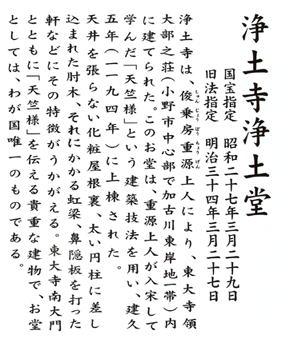 浄土寺浄土堂
国宝指定　昭和二十七年三月二十九日
旧法指定　明治三十四年三月二十七日
浄土寺は、俊乗房重源上人により、東大寺領
しゅん じょう ぼう ちょう げん
大部之荘(小野市中心部で加古川東岸地一帯)内
に建てられた。このお堂は、重源上人が入宋して
学んだ「天竺様」という建築技法を用い、建久
五年(一一九四年)に上棟された。
天井を張らない化粧屋根裏、太い円柱に差し
込まれた肘木、それにかかる虹梁、鼻隠板を打った
軒などにその特徴がうかがえる。東大寺南大門
とともに「天竺様」を伝える貴重な建物で、お堂
としては、わが国唯一のものである。